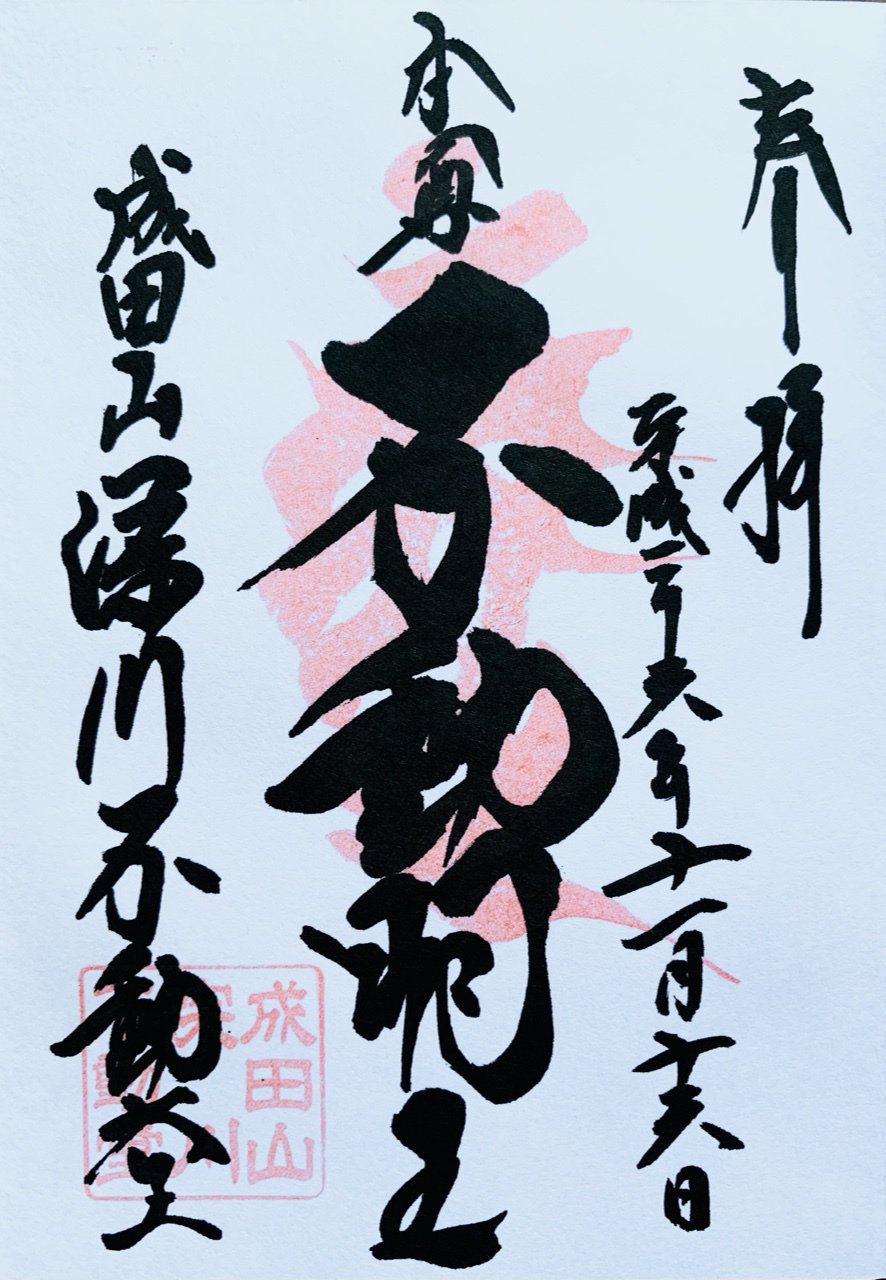 奉拝
平成二十六年十一月十六日
本尊
不動明王
成田山深川不動堂
成田山
深川
不動堂